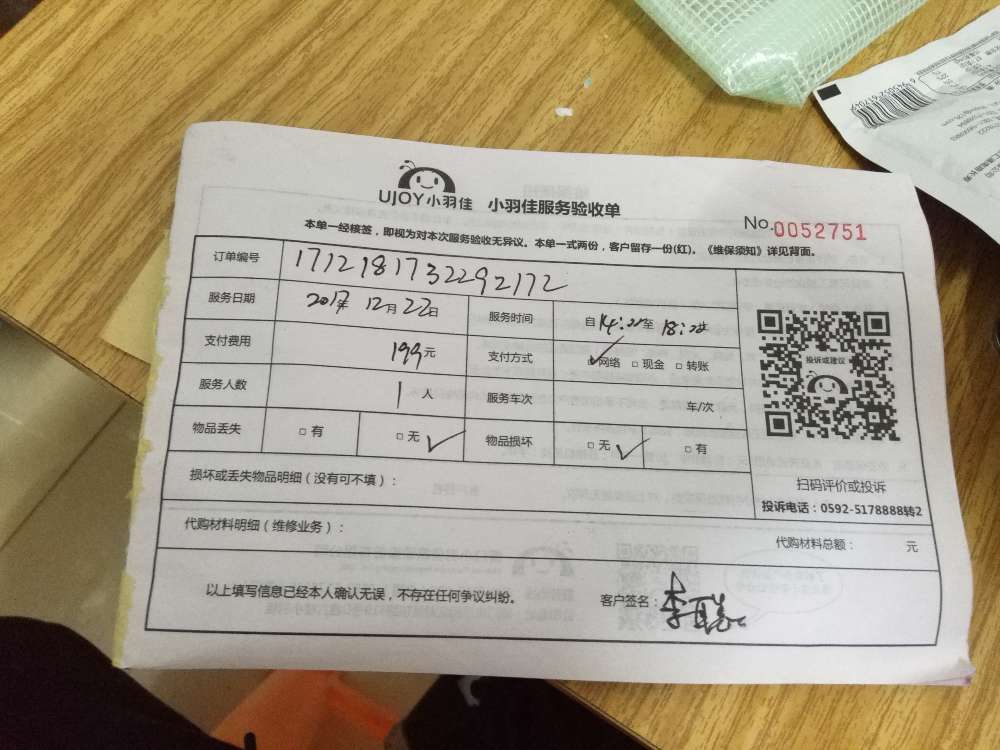 UJOY小羽佳 小羽佳服务验收单
No.0052751
本单一经核签，即视为对本次服务验收无异议。本单一式两份，客户留存一份(红)。《维保须知》详见背面。
订单编号 1712181732292172
服务日期 2017年 12月 22日 服务时间 自 14:00 至 18:00
支付费用 199元 支付方式 ☑网络 □现金 □转账
服务人数 1 人 服务车次 车/次
物品丢失 □有 □无✓ 物品损坏 □无✓ □有
投诉或建议
扫码评价或投诉
投诉电话：0592-5178888转2
损坏或丢失物品明细（没有可不填）：
代购材料明细（维修业务）： 代购材料总额： 元
以上填写信息已经本人确认无误，不存在任何争议纠纷。 客户签名：李
6945052617049